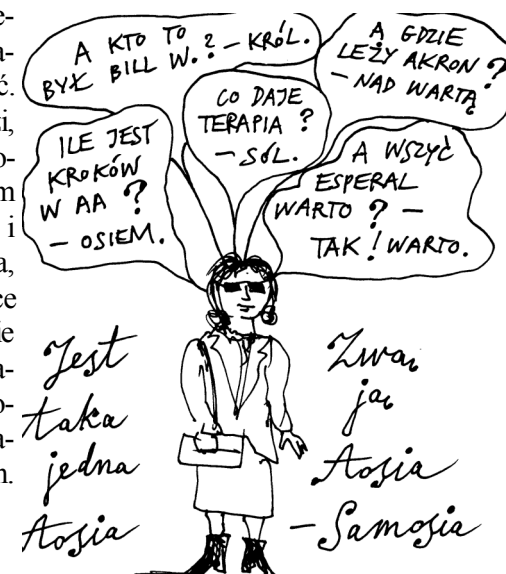 e-
a-
ć.
i,
o-
m
i
a,
ce
ie
a-
o-
a-
n.
A KTO TO
BYŁ BILL W.? – KRÓL.
A GDZIE
LEŻY AKRON?
– NAD WARTĄ
CO DAJE
TERAPIA?
– SÓL.
ILE JEST
KROKÓW
W AA?
– OSIEM.
A WSZYĆ
ESPERAL
WARTO? –
TAK! WARTO.
Jest
taka
jedna
Zosia
Zwą
ją
Zosia
– Samosia